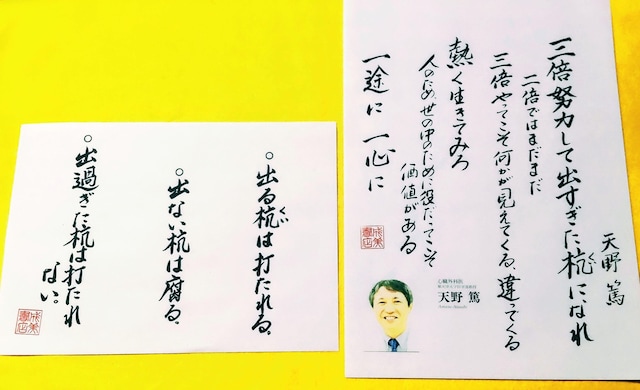 天野 篤
三倍努力して出すぎた杭になれ
くい
二倍ではまだまだ
三倍やってこそ何かが見えてくる、違ってくる
熱く生きてみろ
人のため、世の中のために役だってこそ
価値がある
一途に 一心に
心臓外科医
天野 篤
○出る杭は打たれる。
くい
○出ない杭は腐る。
○出過ぎた杭は打たれ
ない。